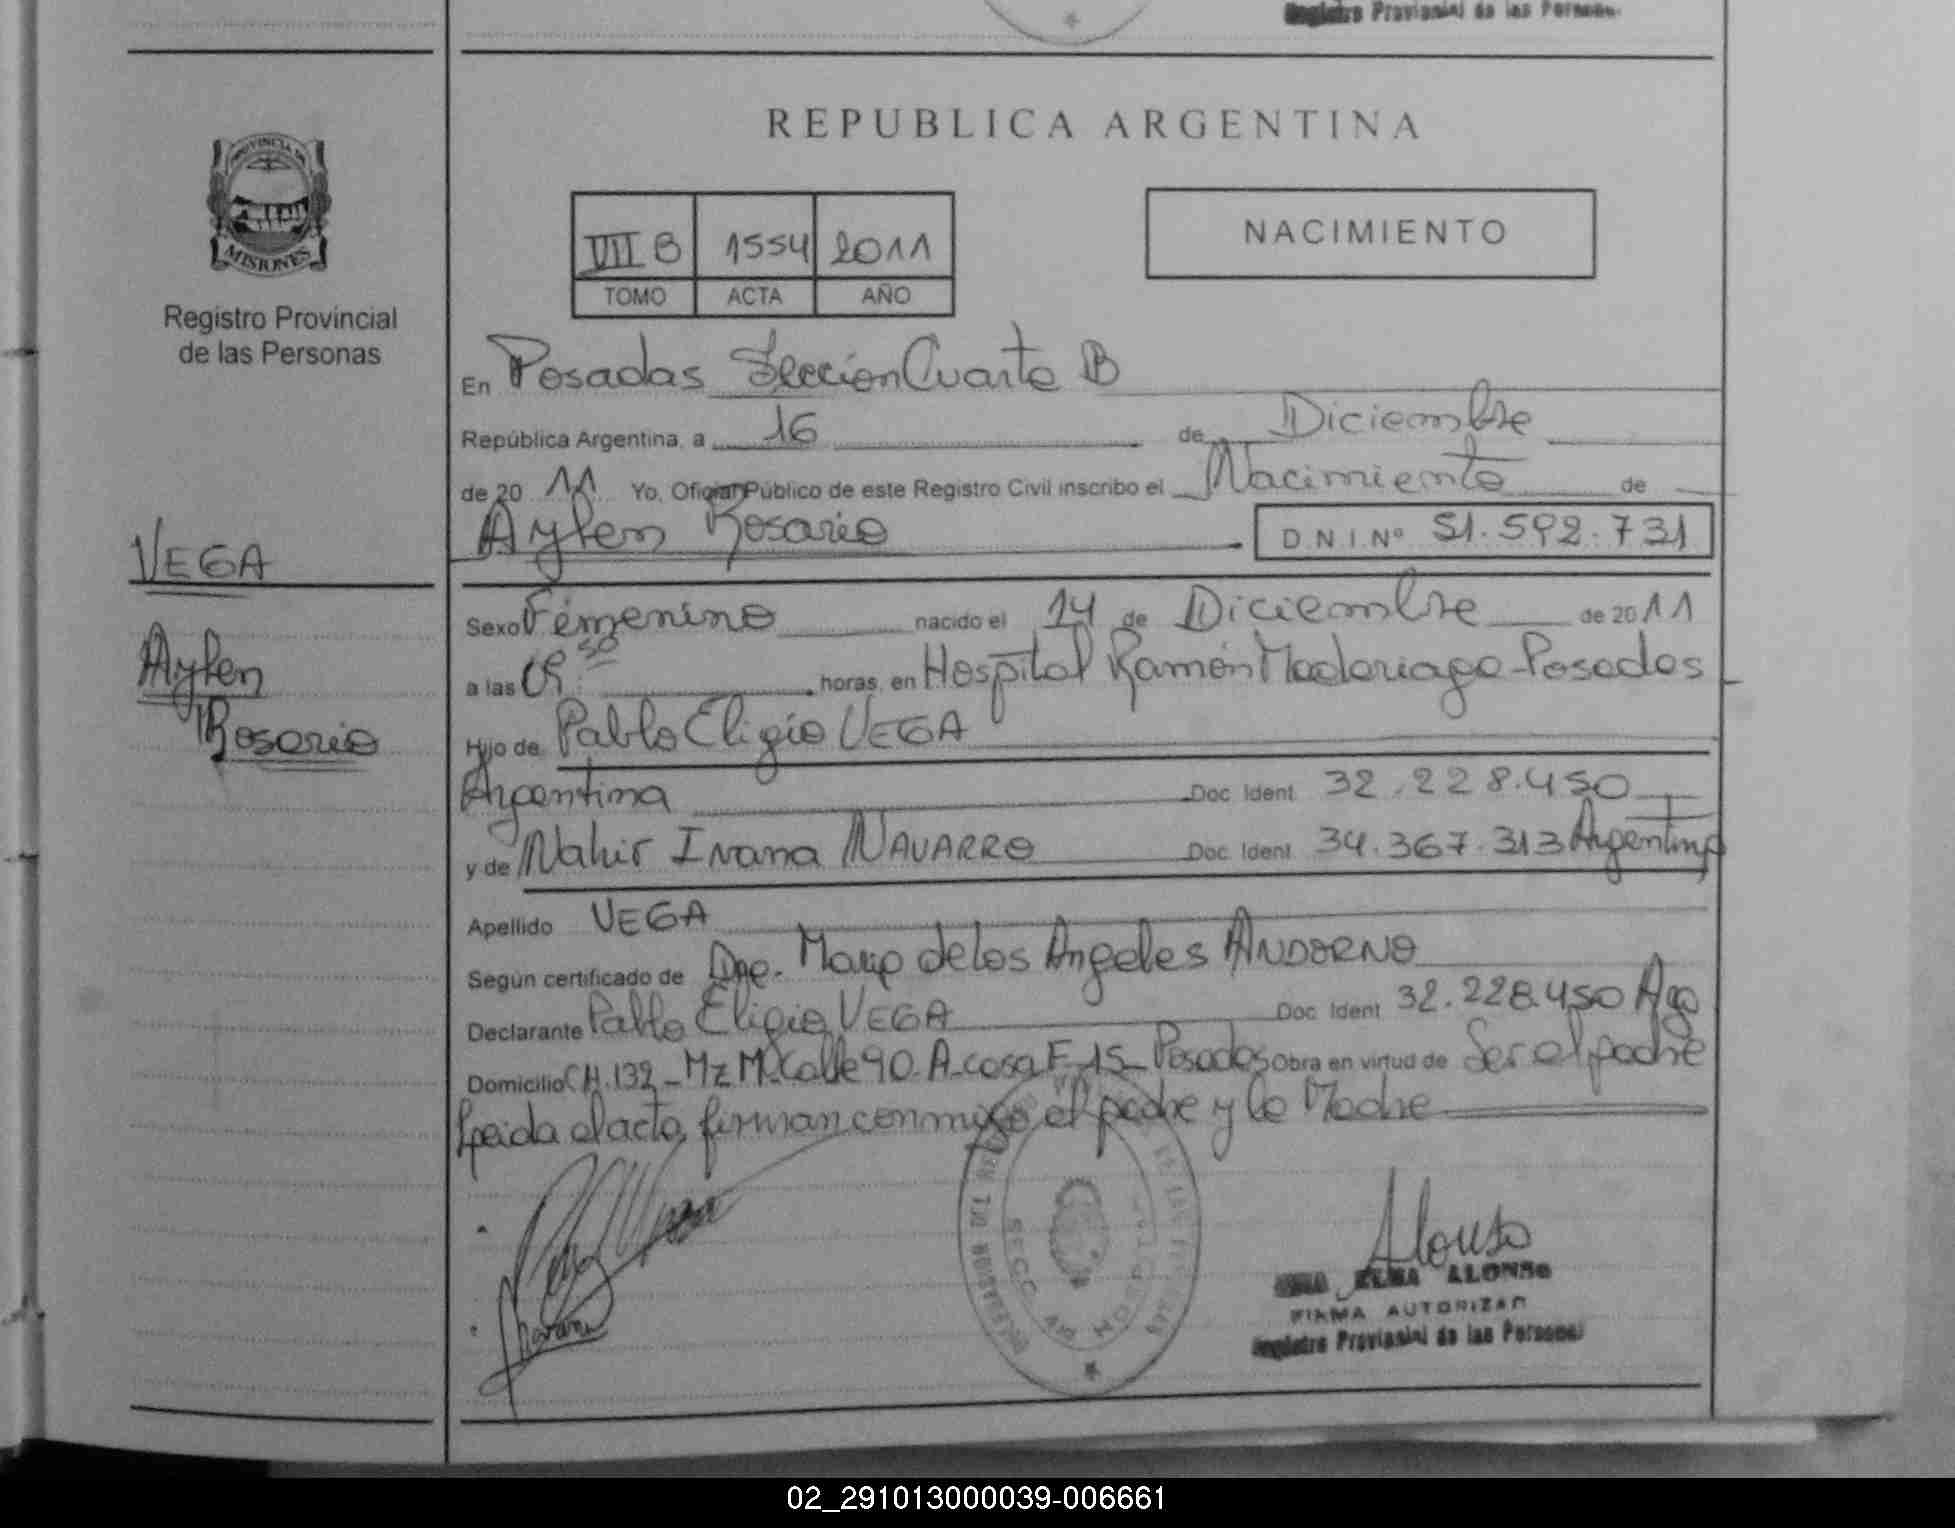 Registro Provincial de las Personas
REPUBLICA ARGENTINA
PROVINCIA DE
MISIONES
VII B 1554 2011
NACIMIENTO
TOMO ACTA AÑO
Registro Provincial
de las Personas
En Posadas Sección Cuarta B
República Argentina, a 16 de Diciembre
de 20 11 Yo, Oficial Público de este Registro Civil inscribo el Nacimiento de
Aylen Rosario D.N.I.Nº 51.592.731
VEGA
Aylen
Rosario
Sexo Femenino nacido el 14 de Diciembre de 20 11
a las 09:50 horas, en Hospital Ramón Madariaga - Posadas
Hijo de Pablo Eligio VEGA
Argentina Doc. Ident. 32.228.450
y de Nahir Ivana NAVARRO Doc. Ident. 34.367.313 Argentina
Apellido VEGA
Según certificado de Dra. María de los Angeles ANDORNO
Declarante Pablo Eligio VEGA Doc. Ident. 32.228.450 Arg
Domicilio CH.132 - Mz M. Calle 90. A. casa F-15 - Posadas Obra en virtud de Ser el padre
Leida el acta, firman conmigo, el padre y la Madre
Alonso
ELBA ALONSO
FIRMA AUTORIZAD
Registro Provincial de las Personas
02_291013000039-006661